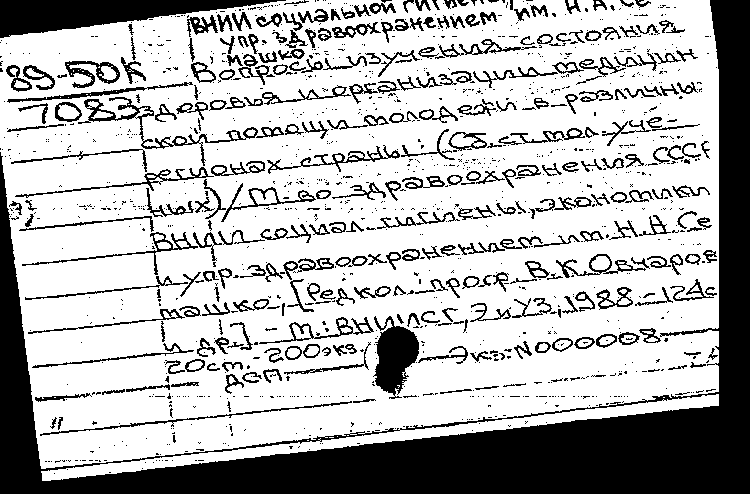 ВНИИ социальной гигиены,
упр. здравоохранением им. Н. А. Се
машко
89-50К
7083
Вопросы изучения состояния
здоровья и организации медицин
ской помощи молодежи в различны
регионах страны: (Сб. ст. мол. уче-
ных) / М-во здравоохранения СССР
ВНИИ социал. гигиены, экономики
и упр. здравоохранением им. Н. А. Се
машко; [Редкол.: проф. В. К. Овчаров
и др.]. - М.: ВНИИСГ, Э и УЗ, 1988. - 124с
20см. - 200экз.
ДСП.
Экз: N000008.